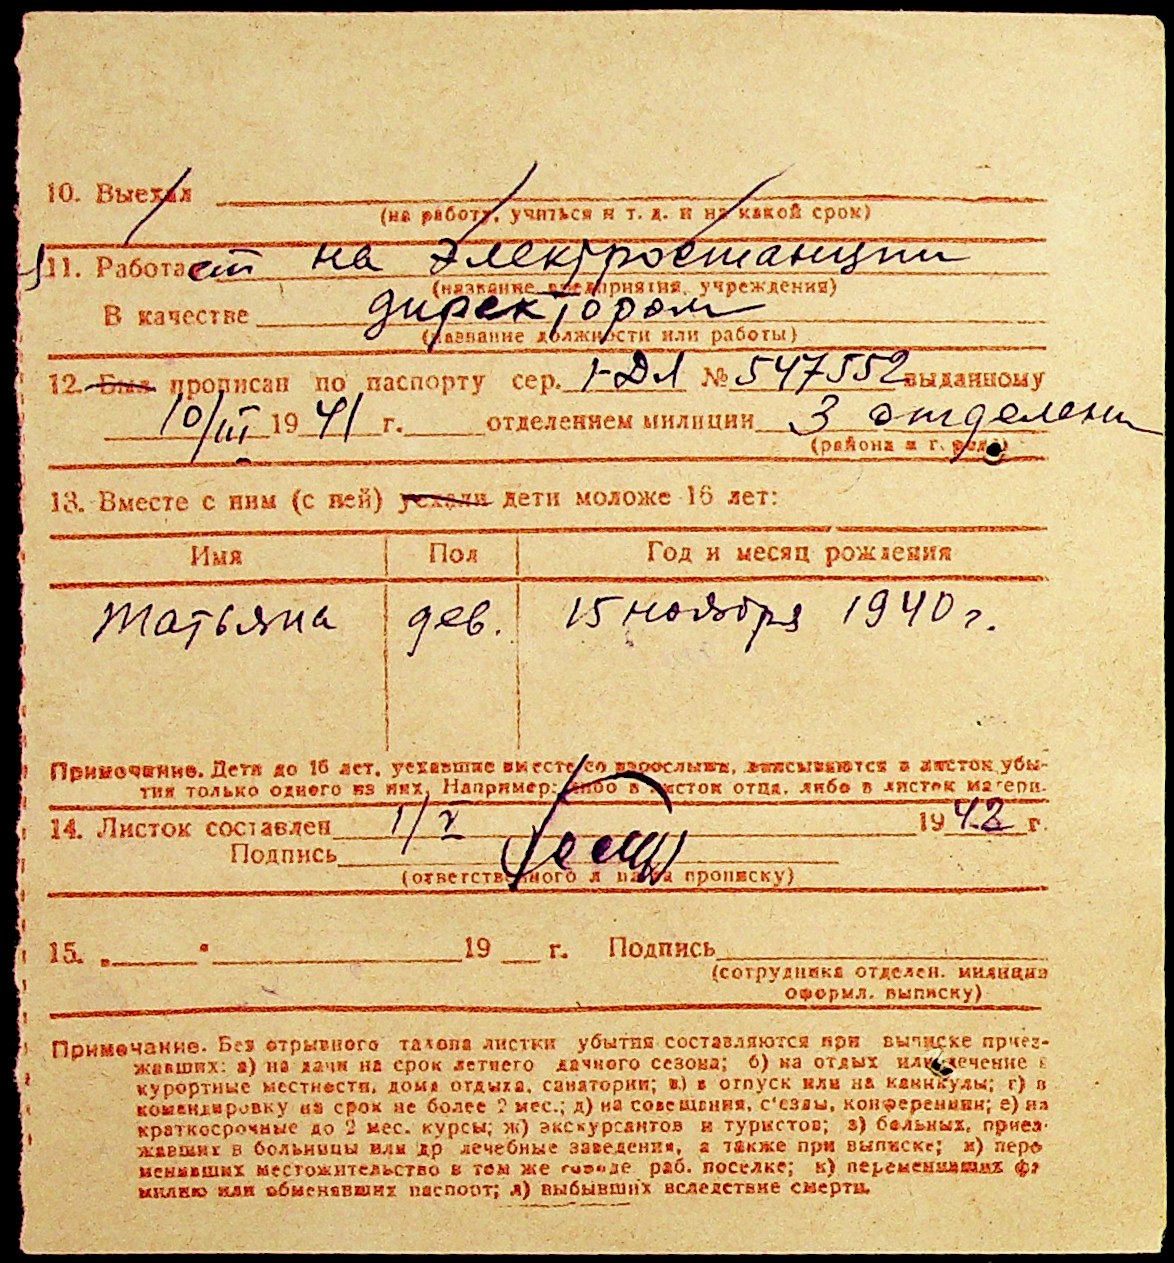 10. Выехал
(на работу, учиться и т. д. и на какой срок)
11. Работает на электростанции
(название предприятия, учреждения)
В качестве директором
(название должности или работы)
12. Был прописан по паспорту сер. I-ДЛ № 547552 выданному
10/III 1941 г. отделением милиции 3 отделени
(района и г.
13. Вместе с ним (с ней) уехали дети моложе 16 лет:
Имя Пол Год и месяц рождения
Татьяна дев. 15 ноября 1940 г.
Примечание. Дети до 16 лет, уехавшие вместе со взрослыми, вписываются в листок убы-
тия только одного из них. Например: либо в листок отца, либо в листок матери.
14. Листок составлен 1/X 1942 г.
Подпись
(ответственного л за прописку)
15. „ " 19 г. Подпись
(сотрудника отделен. милиции
оформл. выписку)
Примечание. Без отрывного талона листки убытия составляются при выписке приез-
жавших: а) на дачи на срок летнего дачного сезона; б) на отдых или лечение в
курортные местности, дома отдыха, санатории; в) в отпуск или на каникулы; г) в
командировку на срок не более 2 мес.; д) на совещания, с'езды, конференции; е) на
краткосрочные до 2 мес. курсы; ж) экскурсантов и туристов; з) больных, приез-
жавших в больницы или др лечебные заведения, а также при выписке; и) пере
менивших местожительство в том же городе раб. поселке; к) переменивших фа
милию или обменявших паспорт; л) выбывших вследствие смерти.